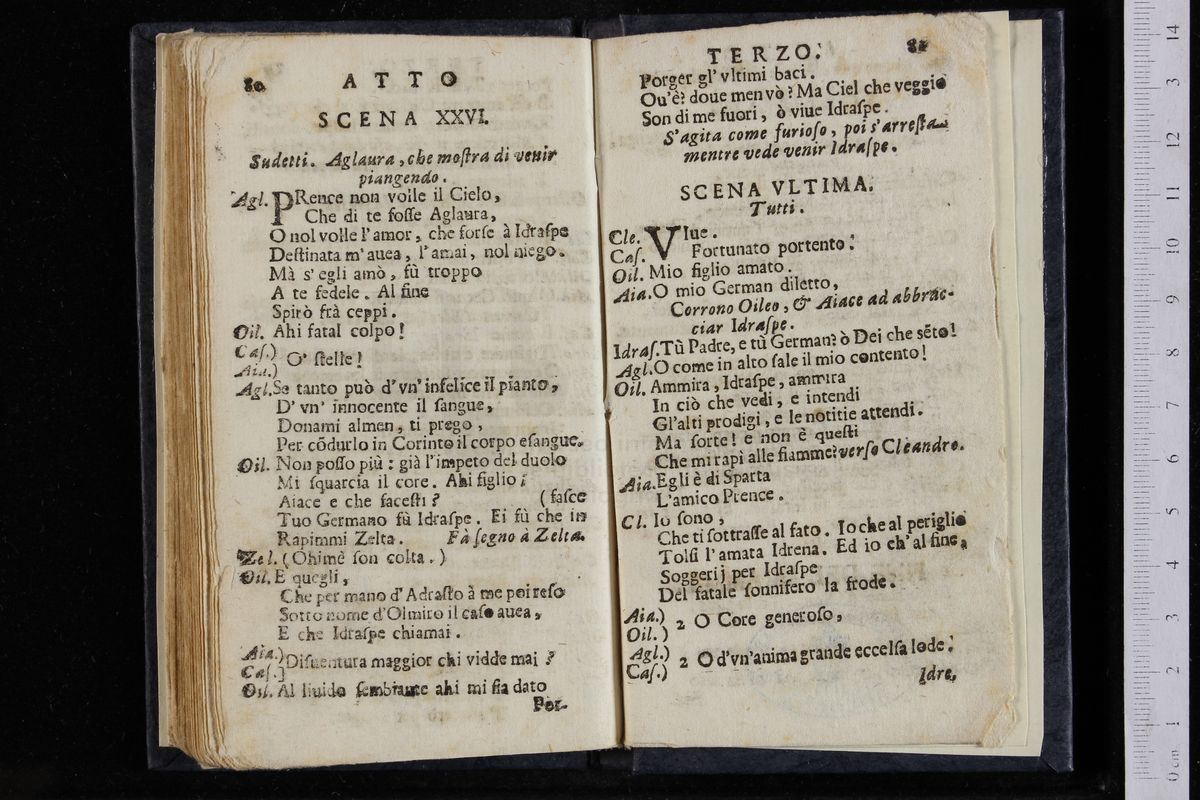 80 ATTO
SCENA XXVI.
Sudetti. Aglaura, che moſtra di venir
piangendo.
Agl. PRence non volle il Cielo,
Che di te foſſe Aglaura,
O nol volle l'amor, che forſe à Idraſpe
Deſtinata m'auea, l'amai, nol niego.
Mà s'egli amò, fù troppo
A te fedele. Al fine
Spirò frà ceppi.
Oil. Ahi fatal colpo!
Caſ.) O' ſtelle!
Aia.)
Agl. Se tanto può d'vn'infelice il pianto,
D'vn' innocente il ſangue,
Donami almen, ti prego,
Per cōdurlo in Corinto il corpo eſangue.
Oil. Non poſſo più: già l'impeto del duolo
Mi ſquarcia il core. Ahi figlio!
Aiace e che faceſti? (faſce
Tuo Germano fù Idraſpe. Ei fù che in
Rapimmi Zelta. Fà ſegno à Zelta.
Zel. (Ohimè ſon colta.)
Oil. E quegli,
Che per mano d'Adraſto à me poi reſo
Sotto nome d'Olmiro il caſo auea,
E che Idraſpe chiamai.
Aia.) Diſuentura maggior chi vidde mai?
Caſ.)
Oil. Al liuido ſembiante ahi mi ſia dato
Por-
TERZO. 81
Porger gl'vltimi baci.
Ou'è? doue men vò? Ma Ciel che veggio
Son di me fuori, ò viue Idraſpe.
S'agita come furioſo, poi s'arreſta
mentre vede venir Idraſpe.
SCENA VLTIMA.
Tutti.
Cle. VIue.
Caſ. Fortunato portento!
Oil. Mio figlio amato.
Aia. O mio German diletto,
Corrono Oileo, & Aiace ad abbrac-
ciar Idraſpe.
Idraſ. Tù Padre, e tù German? ò Dei che sēto!
Agl. O come in alto ſale il mio contento!
Oil. Ammira, Idraſpe, ammira
In ciò che vedi, e intendi
Gl'alti prodigi, e le notitie attendi.
Ma ſorte! e non è queſti
Che mi rapì alle fiamme? verſo Cleandro.
Aia. Egli è di Sparta
L'amico Prence.
Cl. Io ſono,
Che ti ſottraſſe al fato. Io che al periglio
Tolſi l'amata Idrena. Ed io ch'al fine,
Soggerij per Idraſpe
Del fatale ſonnifero la frode.
Aia.) 2 O Core generoſo,
Oil.)
Agl.) 2 O d'vn'anima grande eccelſa lode!
Caſ.)
Idre.